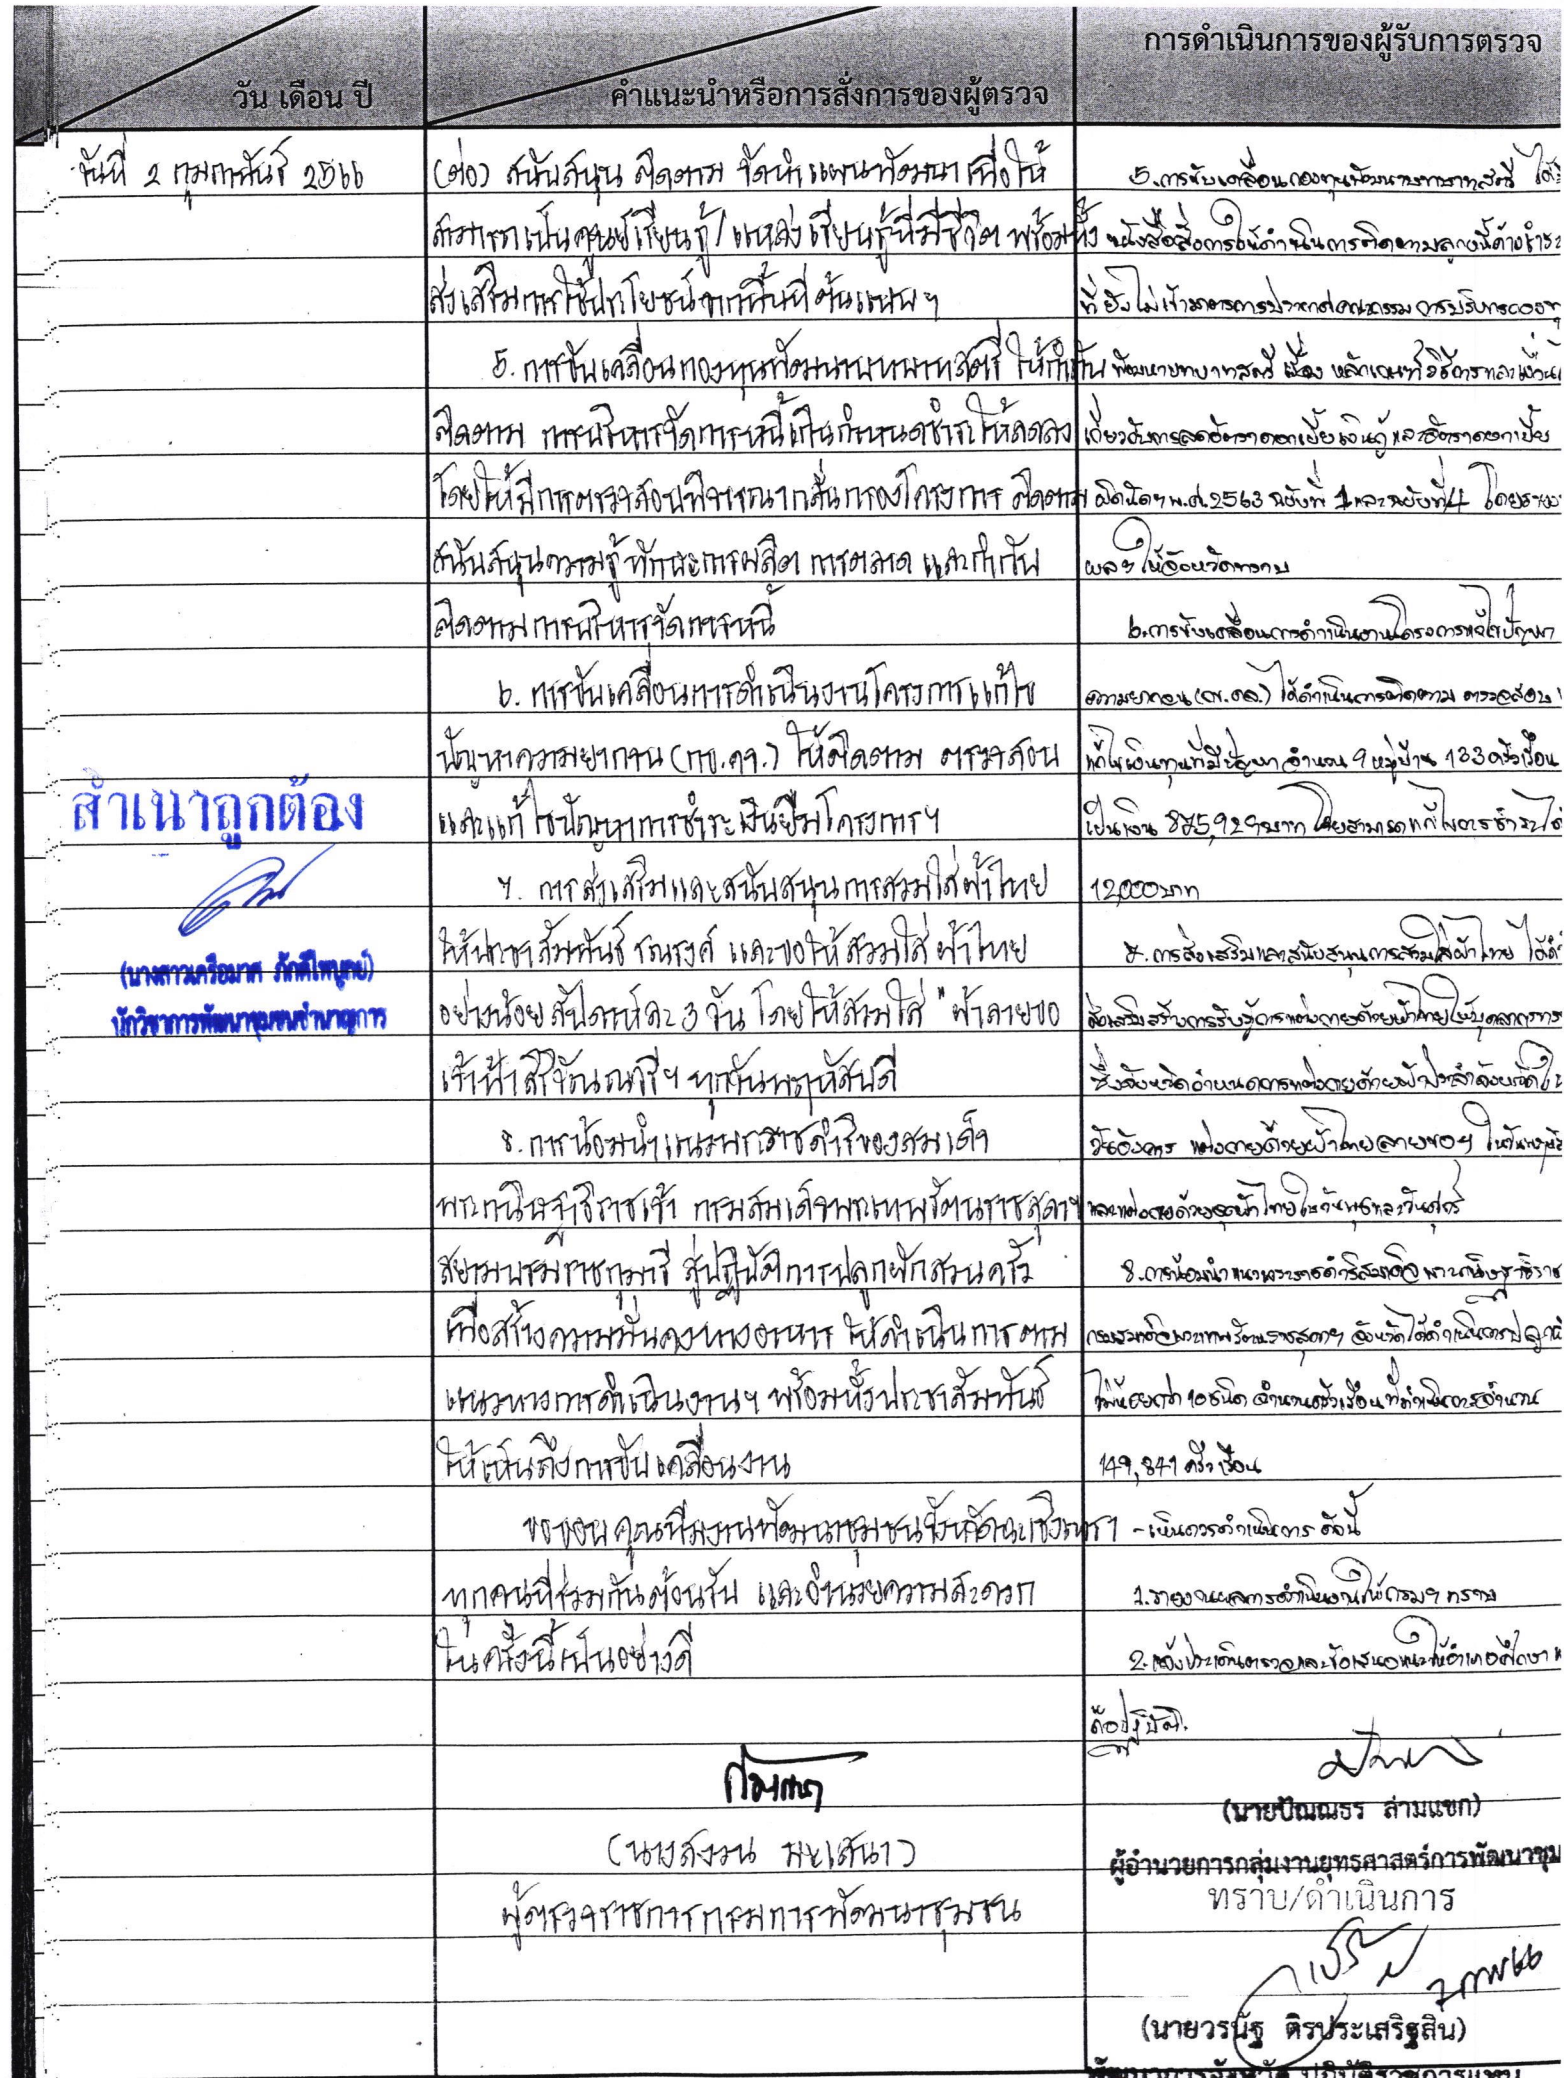 วัน เดือน ปี
คำแนะนำหรือการสั่งการของผู้ตรวจ
การดำเนินการของผู้รับการตรวจ
วันที่ 2 กุมภาพันธ์ 2566
(ต่อ) สนับสนุน ติดตาม จัดทำแผนพัฒนา เพื่อให้
สามารถเป็นศูนย์เรียนรู้/แหล่งเรียนรู้ที่มีชีวิต พร้อมทั้ง
ส่งเสริมการใช้ประโยชน์จากพื้นที่ต้นแบบฯ
5. การขับเคลื่อนกองทุนพัฒนาบทบาทสตรี ให้กำกับ
ติดตาม การบริหารจัดการหนี้เกินกำหนดชำระให้ลดลง
โดยให้มีการตรวจสอบพิจารณากลั่นกรองโครงการ ติดตาม
สนับสนุนความรู้ ทักษะการผลิต การตลาด และกำกับ
ติดตามการบริหารจัดการหนี้
6. การขับเคลื่อนการดำเนินงานโครงการแก้ไข
ปัญหาความยากจน (กข.คจ.) ให้ติดตาม ตรวจสอบ
และแก้ไขปัญหาการชำระเงินยืมโครงการฯ
7. การส่งเสริมและสนับสนุนการสวมใส่ผ้าไทย
ให้ประชาสัมพันธ์ รณรงค์ และขอให้สวมใส่ ผ้าไทย
อย่างน้อยสัปดาห์ละ 3 วัน โดยให้สวมใส่ "ผ้าลายขอ
เจ้าฟ้าสิริวัณณวรีฯ ทุกวันพฤหัสบดี
8. การน้อมนำแนวพระราชดำริของสมเด็จ
พระกนิษฐาธิราชเจ้า กรมสมเด็จพระเทพรัตนราชสุดาฯ
สยามบรมราชกุมารี สู่ปฏิบัติการปลูกผักสวนครัว
เพื่อสร้างความมั่นคงทางอาหาร ให้ดำเนินการตาม
แนวทางการดำเนินงานฯ พร้อมทั้งประชาสัมพันธ์
ให้เห็นถึงการขับเคลื่อนงาน
ขอขอบคุณทีมงานพัฒนาชุมชนจังหวัดฉะเชิงเทรา
ทุกคนที่ร่วมกันต้อนรับ และอำนวยความสะดวก
ในครั้งนี้เป็นอย่างดี
(นางสงวน มะเสนา)
ผู้ตรวจราชการกรมการพัฒนาชุมชน
สำเนาถูกต้อง
(นางสาวเครือมาศ ภักดีไพบูลย์)
นักวิชาการพัฒนาชุมชนชำนาญการ
5. การขับเคลื่อนกองทุนพัฒนาบทบาทสตรี ได้
หนังสือสั่งการให้ดำเนินการติดตามลูกหนี้ค้างชำระ
ที่ยังไม่เข้ามาตรการประกาศคณะกรรมการบริหารกองทุ
พัฒนาบทบาทสตรี เรื่อง หลักเกณฑ์ วิธีการและเงื่อนไ
เกี่ยวกับการลดอัตราดอกเบี้ยเงินกู้ และอัตราดอกเบี้ย
ผิดนัดฯ พ.ศ. 2563 ฉบับที่ 1 และฉบับที่ 4 โดยรายง
ผลฯ ให้จังหวัดทราบ
6. การขับเคลื่อนการดำเนินงานโครงการแก้ไขปัญหา
ความยากจน (กข.คจ.) ได้ดำเนินการติดตาม ตรวจสอบ
แก้ไขเงินทุนที่มีปัญหา จำนวน 9 หมู่บ้าน 133 ครัวเรือน
เป็นเงิน 875,929 บาท โดยสามารถแก้ไขการชำระได้
12,000 บาท
7. การส่งเสริมและสนับสนุนการสวมใส่ผ้าไทย ได้ดำ
ส่งเสริมสร้างการรับรู้การแต่งกายด้วยผ้าไทยให้บุคลากร
ซึ่งจังหวัดกำหนดการแต่งกายด้วยผ้าประจำจังหวัดใน
วันอังคาร แต่งกายด้วยผ้าไทยลายขอฯ ในวันพฤหัส
และแต่งกายด้วยชุดผ้าไทยในวันพุธและวันศุกร์
8. การน้อมนำแนวพระราชดำริสมเด็จพระกนิษฐาธิราช
กรมสมเด็จพระเทพรัตนราชสุดาฯ จังหวัดได้ดำเนินการปลูกผั
ไม่น้อยกว่า 10 ชนิด จำนวนครัวเรือนที่ดำเนินการจำนวน
149,841 ครัวเรือน
- เห็นควรดำเนินการ ดังนี้
1. รายงานผลการดำเนินงานให้กรมฯ ทราบ
2. แจ้งประเด็นตรวจและข้อเสนอแนะให้อำเภอศึกษา
ถือปฏิบัติ
(นายปัณณธร ล่ามแขก)
ผู้อำนวยการกลุ่มงานยุทธศาสตร์การพัฒนาชุม
ทราบ/ดำเนินการ
(นายวรนัฐ ติรประเสริฐสิน)
พัฒนาการจังหวัด ปฏิบัติราชการแทน